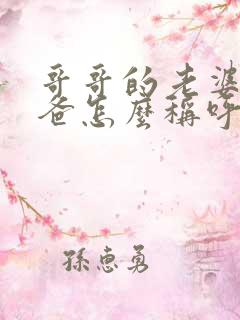 哥哥的老婆
爸怎麼稱呼
孫惠勇